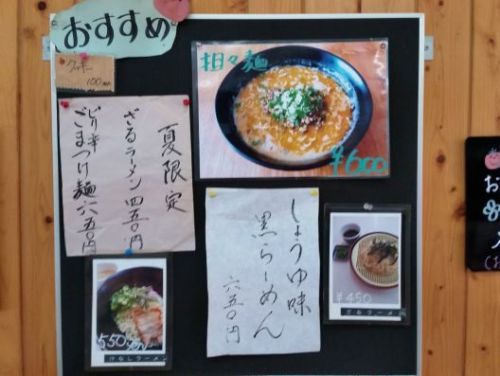 おすすめ
クッキー
100
担々麺
¥600
夏限定
ざるラーメン 四五〇円
ピリ辛
ごまつけ麺 六五〇円
しょうゆ味
黒らーめん
六五〇円
¥450
ざるラーメン
550
ラーメン
お